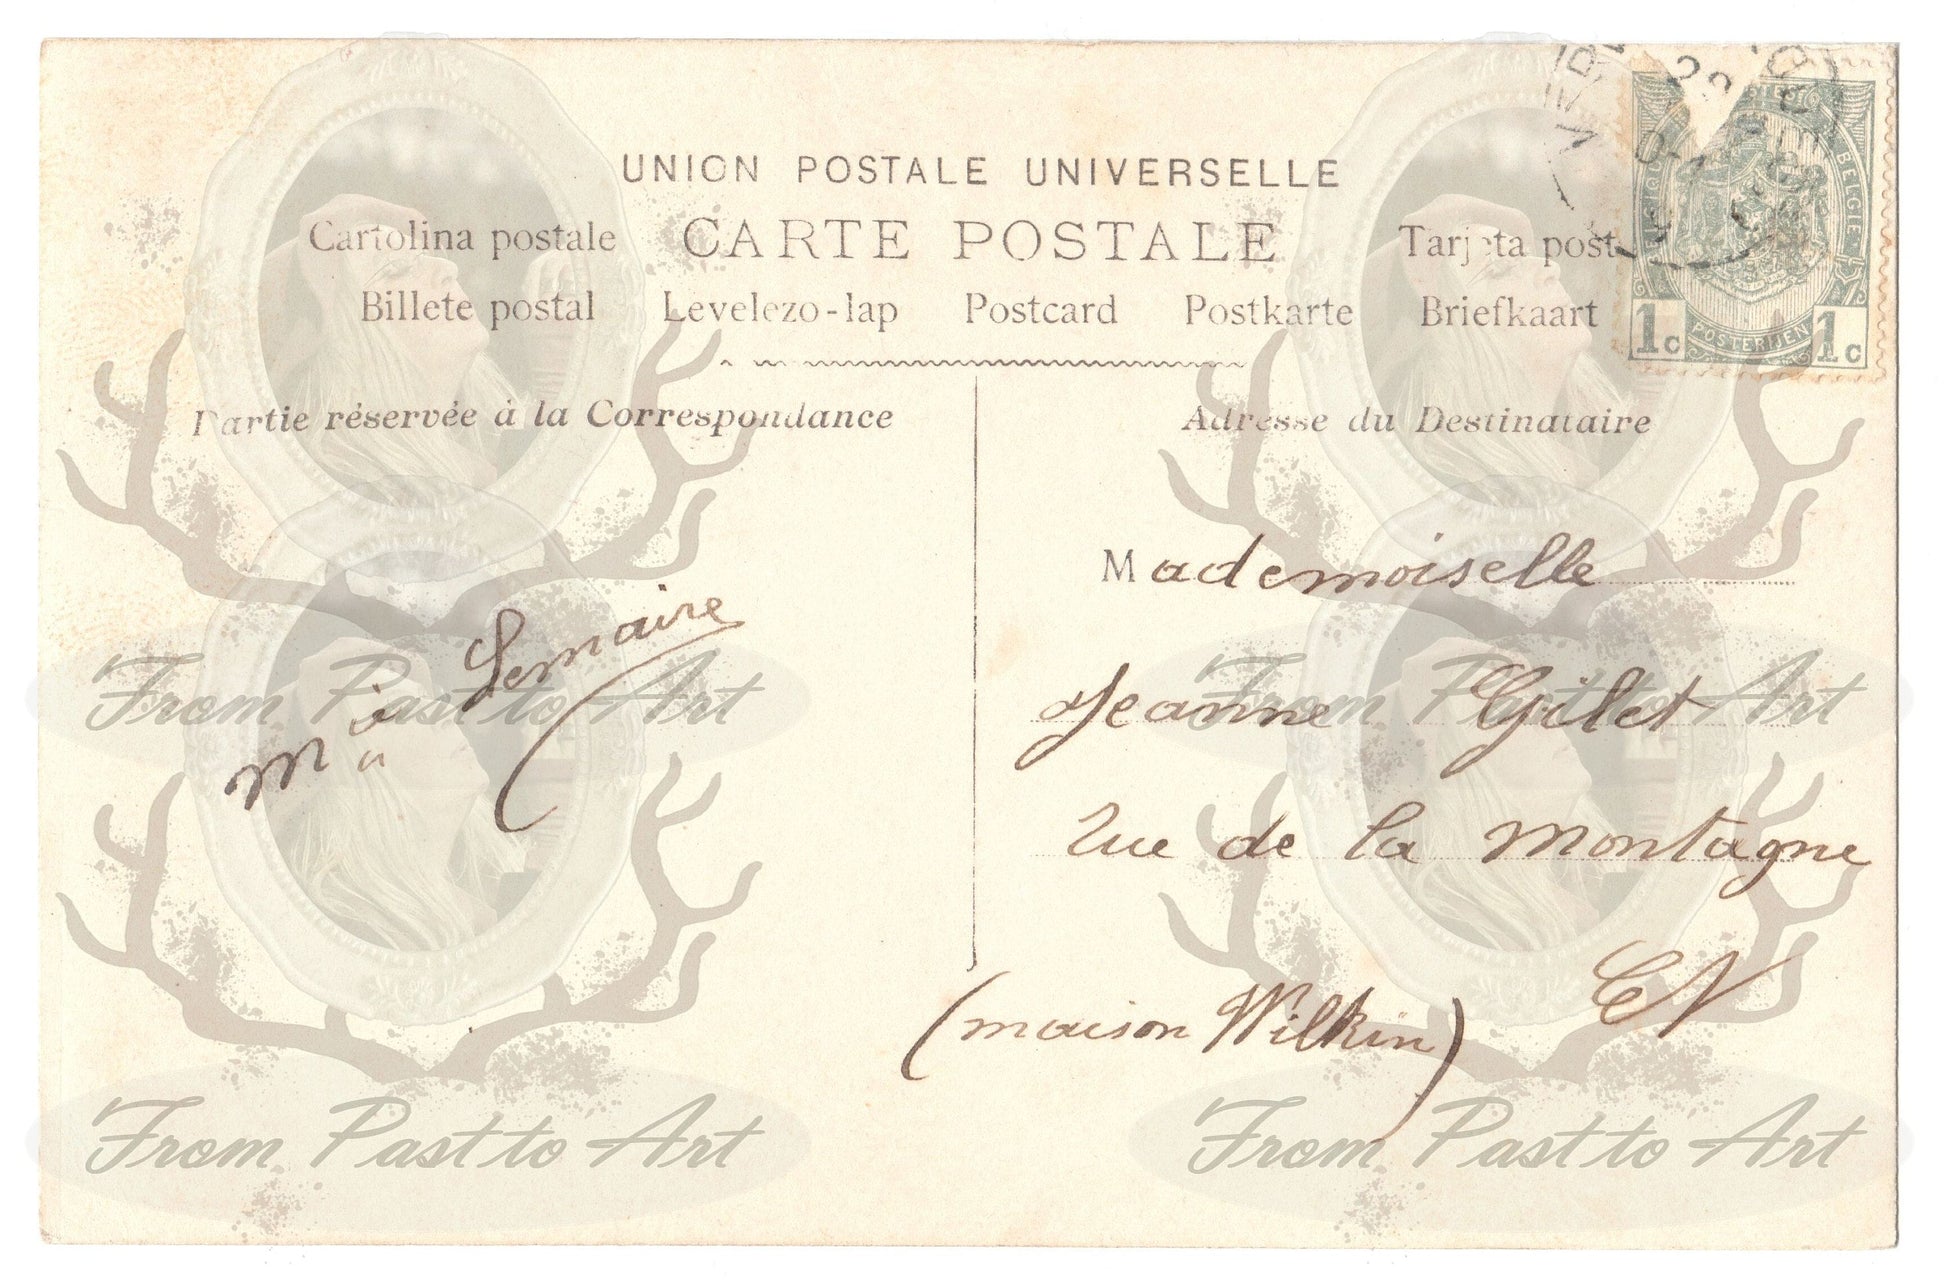 UNION POSTALE UNIVERSELLE
Cartolina postale CARTE POSTALE Tarjeta post
Billete postal Levelezo-lap Postcard Postkarte Briefkaart
Partie réservée à la Correspondance
Adresse du Destinataire
BELGIQUE BELGIE
POSTERIJEN
1c 1c
Mademoiselle
Jeanne Gilet
rue de la Montagne
EV
(maison Wilkin)
Lemaire
From Past to Art
From Past to Art
From Past to Art
From Past to Art